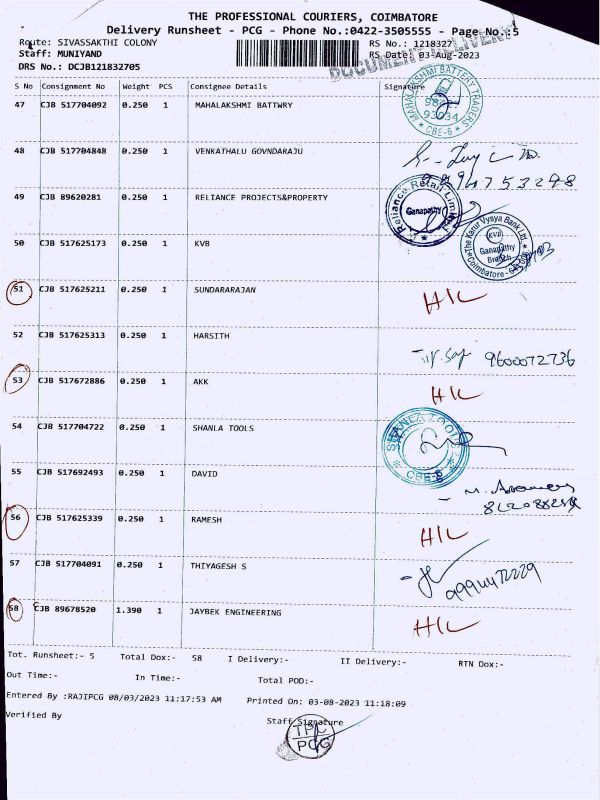 THE PROFESSIONAL COURIERS, COIMBATORE
Delivery Runsheet - PCG - Phone No.:0422-3505555 - Page No.:5
Route: SIVASSAKTHI COLONY RS No.: 1218327
Staff: MUNIYAND RS Date: 03-Aug-2023
DRS No.: DCJB121832705
DOCUMENT DELIVERY
S No Consignment No Weight PCS Consignee Details Signature
47 CJB 517704092 0.250 1 MAHALAKSHMI BATTWRY
MAHALAKSHMI BATTERY TRADERS
93034
* CBE-6 *
48 CJB 517704848 0.250 1 VENKATHALU GOVNDARAJU
49 CJB 89620281 0.250 1 RELIANCE PROJECTS&PROPERTY
Reliance Retail Limited
Ganapathy
50 CJB 517625173 0.250 1 KVB
The Karur Vysya Bank Ltd.
KVB
Ganapathy
Branch
Coimbatore
51 CJB 517625211 0.250 1 SUNDARARAJAN H/L
52 CJB 517625313 0.250 1 HARSITH 9600072736
53 CJB 517672886 0.250 1 AKK H/L
54 CJB 517704722 0.250 1 SHANLA TOOLS
SHANLA TOOLS
* CBE-6 *
55 CJB 517692493 0.250 1 DAVID
56 CJB 517625339 0.250 1 RAMESH H/L
57 CJB 517704091 0.250 1 THIYAGESH S
58 CJB 89678520 1.390 1 JAYBEK ENGINEERING H/L
Tot. Runsheet:- 5 Total Dox:- 58 I Delivery:- II Delivery:- RTN Dox:-
Out Time:- In Time:- Total POD:-
Entered By :RAJIPCG 08/03/2023 11:17:53 AM Printed On: 03-08-2023 11:18:09
Verified By Staff Signature
TPC
PCG